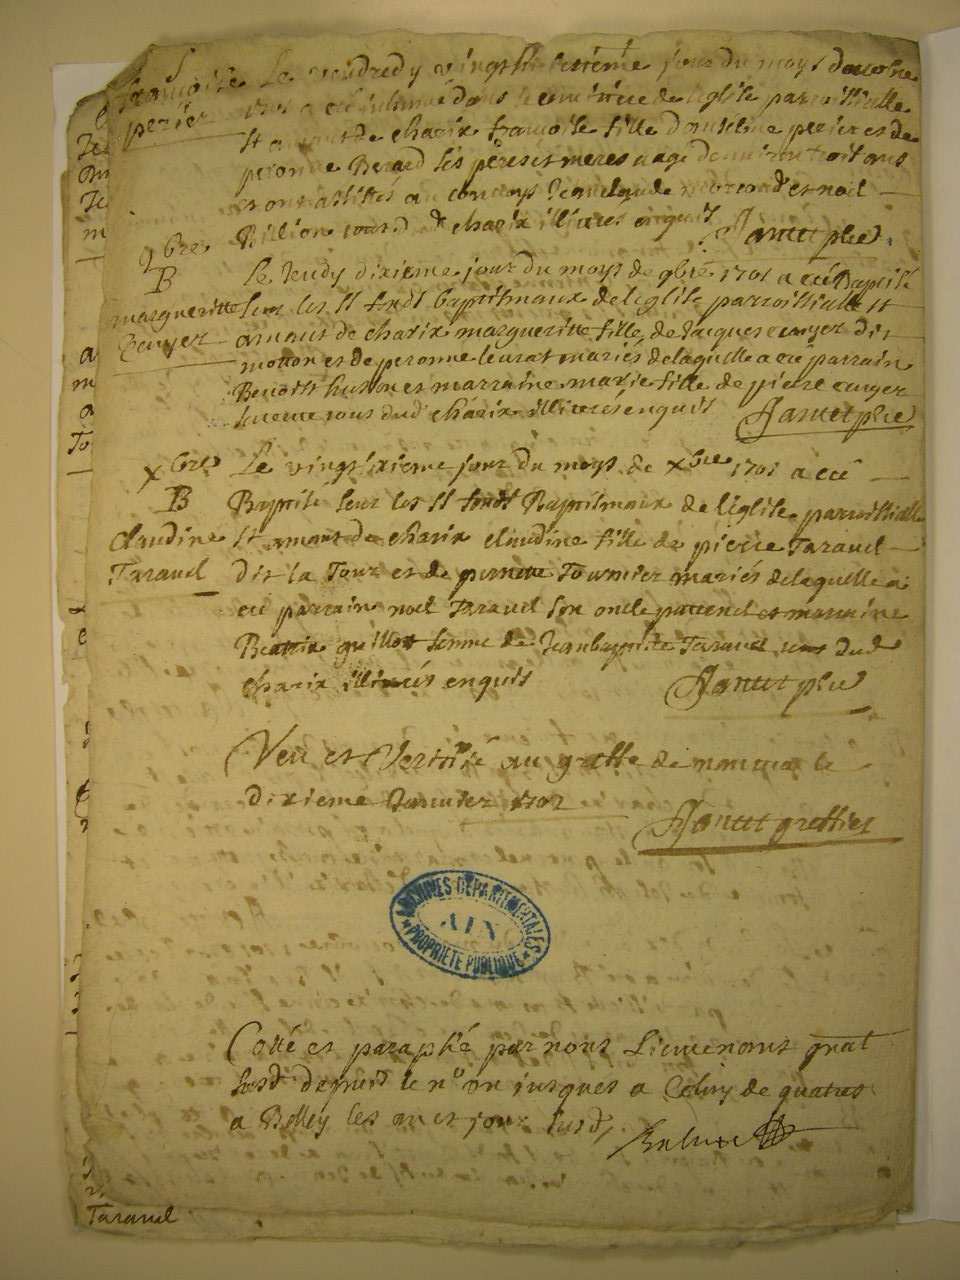 S
françoise
perier
Le vendredy vingt jour du moys doctobre
1701 a esté inhumé dans le cimitiere de leglise parroissialle
st amant de charix françoise fille danselme perier et de
peronne Berard ses peres et meres aagé denviron trois ans
et ont assistés au convoys Jeanclaude et noel
Billion tous dud charix illiterés enquis Janet pbre
9bre
B
margueritte
Ecuyer
Le Jeudy dixieme jour du moys de 9bre 1701 a eté Baptisé
sur les st fondt baptismaux de leglise parroissialle st
amant de charix margueritte fille de Jacques ecuyer dit
et de peronne mariés de laquelle a eté parrain
Benoist et marraine marie fille de pierre ecuyer
tous dud charix illiterés enquis Janet pbre
xbre
B
claudine
Taravel
Le vingtsixieme jour du moys de xbre 1701 a eté
Baptisé sur les st fondt Baptismaux de leglise parroissialle
st amant de charix claudine fille de pierre Taravel
dit la Tour et de pernette Tournier mariés de laquelle a
eté parrain noel Taravel son oncle paternel et marraine
Beatrix guillot femme de Jeanbaptiste Taravel tous dud
charix illiterés enquis Janet pbre
Veu et Verifié au greffe de nantua le
dixieme Janvier 1702
Janet greffier
ARCHIVES DEPARTEMENTALES
AIN
PROPRIETE PUBLIQUE
Cotté et paraphé par nous Lieutenant gnal
susd depuis le no un jusques a Celuy de quatres
a Belley les an et jour susd
Taravel